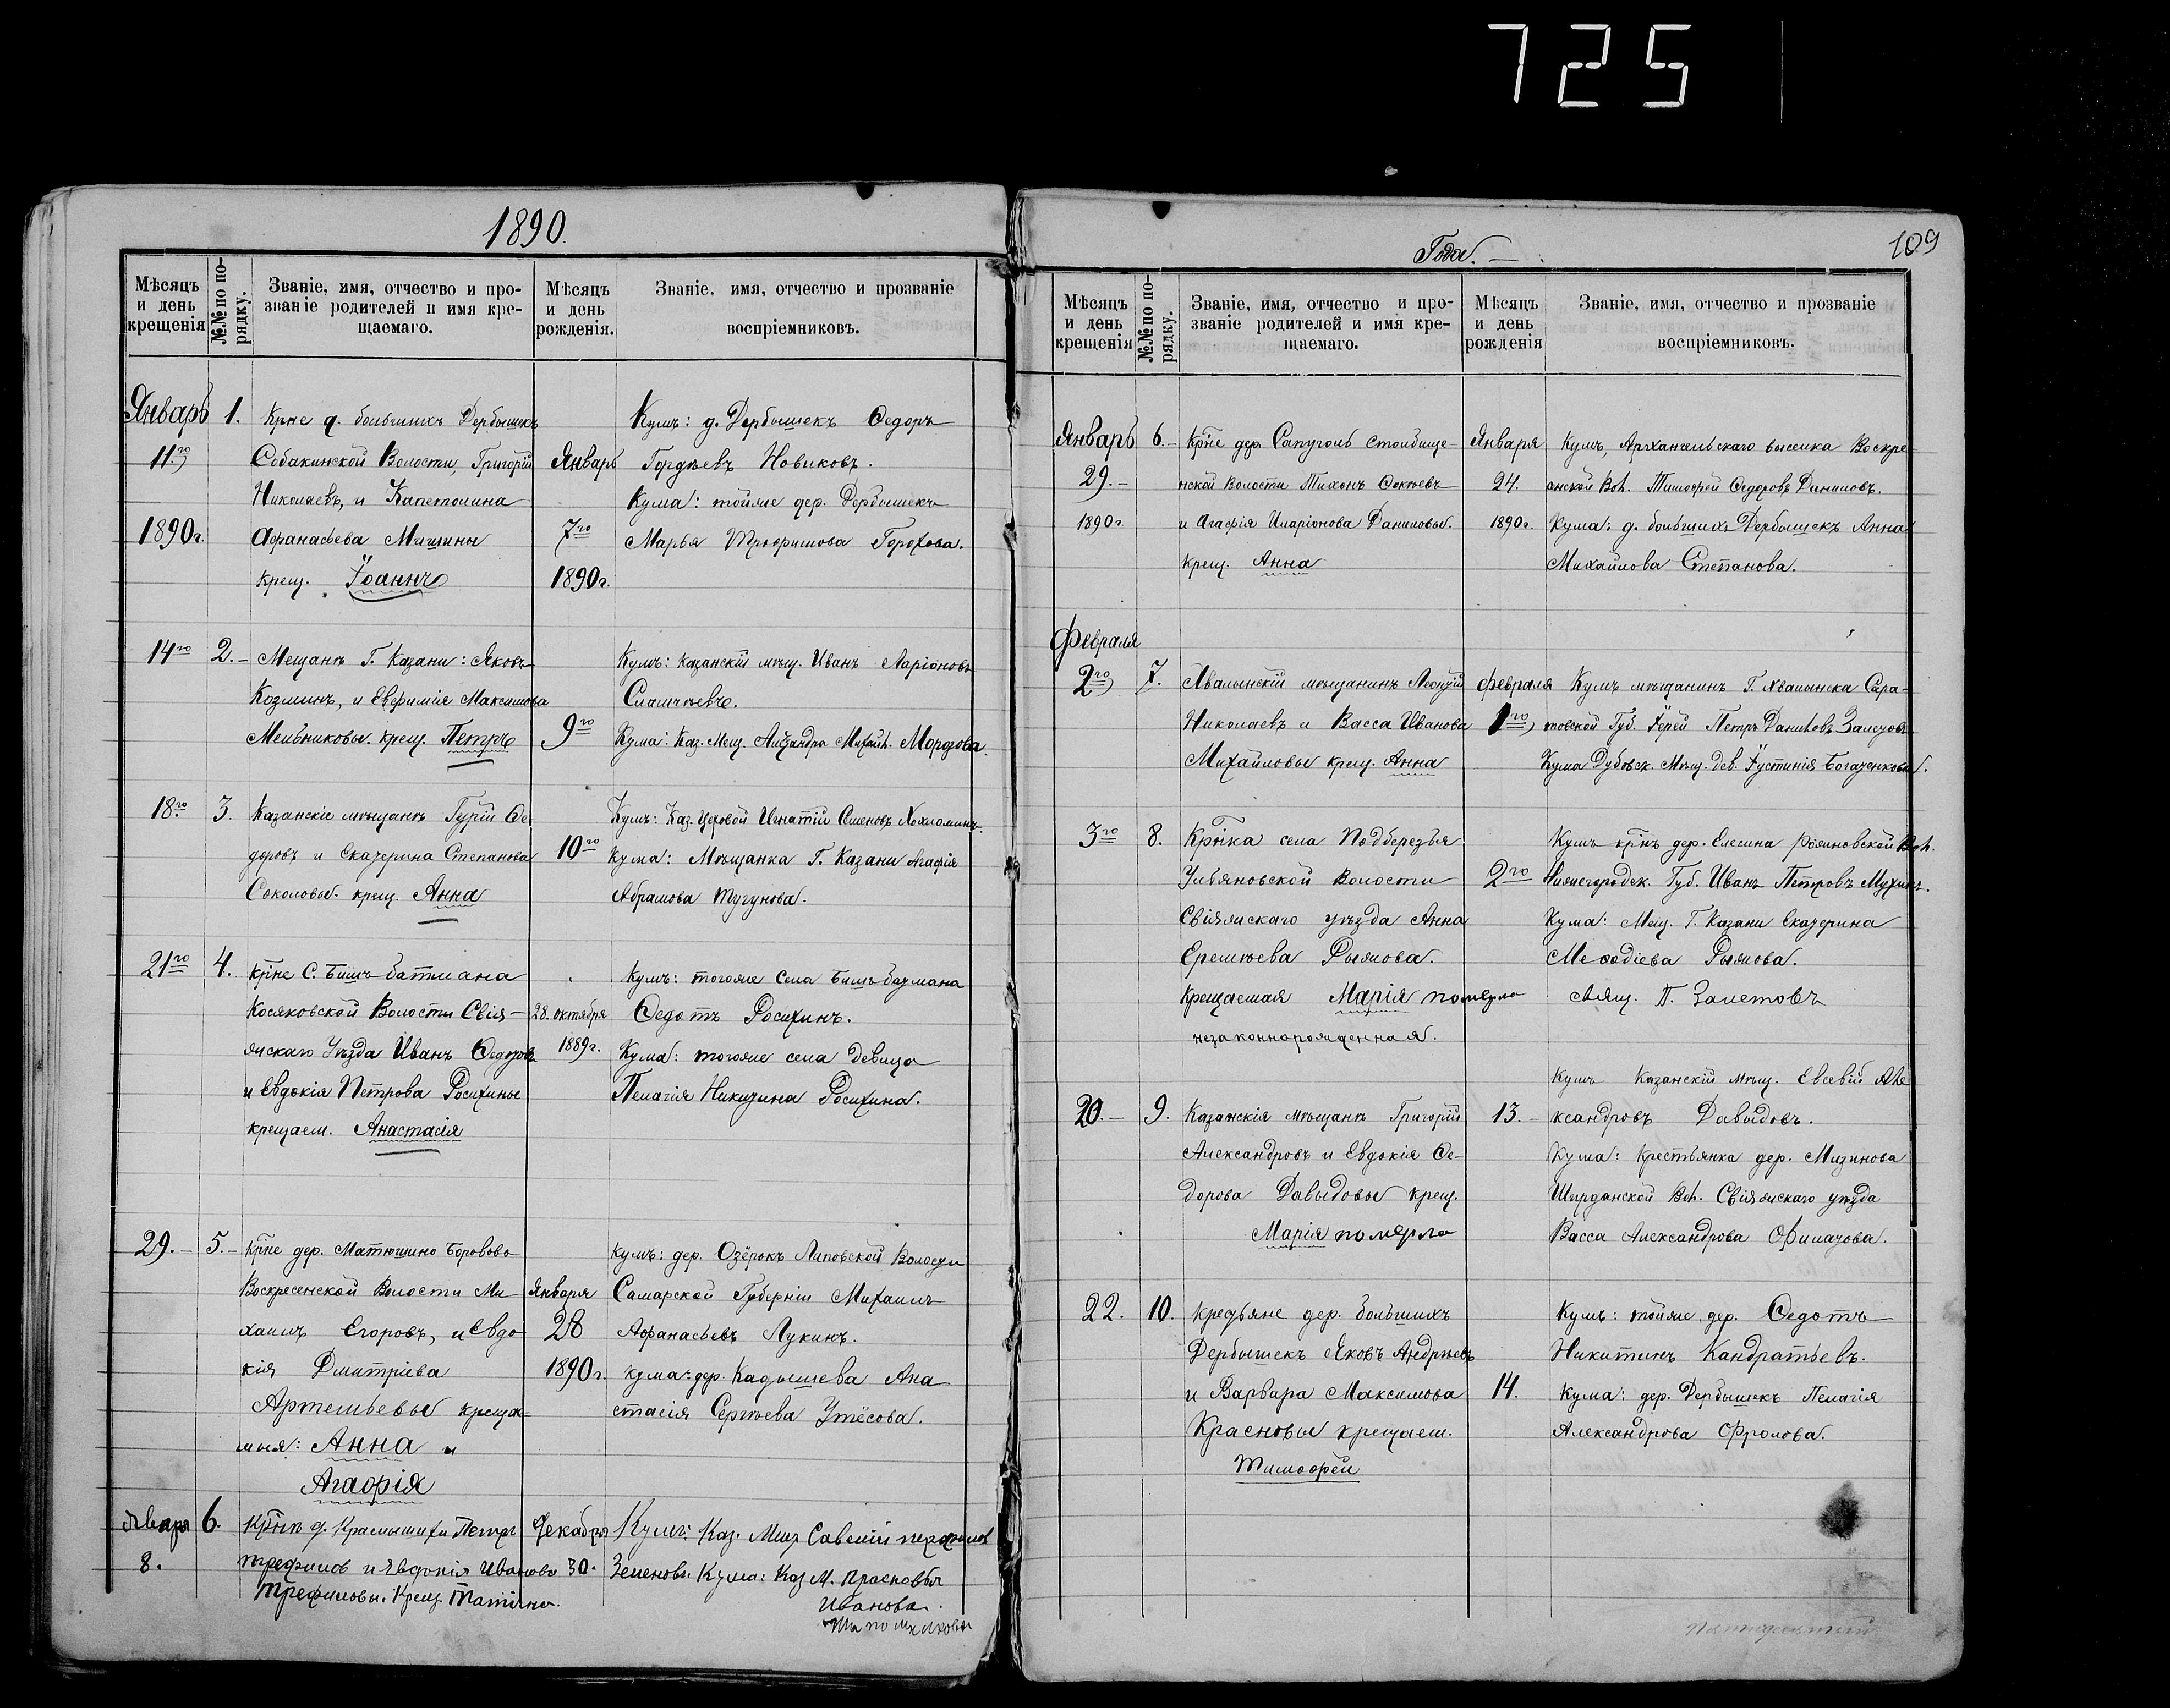 725
1890.
Мѣсяцъ и день крещенія
№№ по порядку.
Званіе, имя, отчество и прозваніе родителей и имя крещаемаго.
Мѣсяцъ и день рожденія.
Званіе, имя, отчество и прозваніе воспріемниковъ.
Январь 1. Крне д. большихъ Дербышекъ
11го Собакинской Волости, Григорій
Николаевъ, и Капетолина
1890г. Афанасьева Мишины
крещ. Іоаннъ
Январь
7го
1890г.
Кумъ: д. Дербышекъ Ѳедоръ
Гордѣевъ Новиковъ.
Кума: тойже дер. Дербышекъ
Марья Трофимова Горохова.
14го 2. Мещане Г. Казани: Яковъ
Козминъ, и Евфимія Максимова
Мельниковы. крещ. Петръ
9го
Кумъ: казанскій мѣщ. Иванъ Ларіоновъ
Кума: Каз. Мещ. Александра Михайл. Морозова.
18го 3. Казанскіе мѣщане Гурій Ѳе
доровъ и Екатерина Степанова
Соколовы. крещ. Анна
10го
Кумъ: Каз. Цеховой Игнатій Семеновъ
Кума: Мѣщанка Г. Казани Агафія
Абрамова Тугунова.
21го 4. крне С. Бишъ батмана
Косяковской Волости Свія-
жскаго Уѣзда Иванъ Ѳедоровъ
и Евдокія Петрова Росихины
крещаем. Анастасія
28. октября
1889г.
Кумъ: тогоже села Бишъ-батмана
Ѳедотъ Росихинъ.
Кума: тогоже села девица
Пелагія Никитина Росихина.
29. 5. Крне дер. Матюшино Боровово
Воскресенской Волости Ми-
хаилъ Егоровъ, и Евдо
кія Дмитріева
Артемьевы креща-
мыя: Анна и
Агафія
Января
28
1890г.
Кумъ: дер. Озёрокъ Липовской Волости
Самарской Губерніи Михаилъ
Афанасьевъ Лукинъ.
кума: дер. Кадышева Ана
стасія Сергѣева Утёсова.
Январ 6. Крне д. Петръ
8. Трефилов и Явдокія Иванова
Трефиловы. Крещ.
Декабря
30.
Кумъ: Каз. Мищ Савелій
Кума: Каз М. Прасковья
Иванова.
Года.
109
Мѣсяцъ и день крещенія
№№ по порядку.
Званіе, имя, отчество и прозваніе родителей и имя крещаемаго.
Мѣсяцъ и день рожденія
Званіе, имя, отчество и прозваніе воспріемниковъ.
Январь 6. Крне дер. Сапуголь Столбище-
29. нской Волости Тихонъ
1890г. и Агафія Иларіонова Даниловы.
крещ. Анна
Января
24.
1890г.
Кумъ, Архангельскаго выселка Воскре-
снской Вол. Тимофей Ѳедоровъ Даниловъ.
Кума: д. большихъ Дербышекъ Анна
Михайлова Степанова.
Февраля
2го 7. Хвалынскій мѣщанинъ Леонтій
Николаевъ и Васса Иванова
Михайловы крещ. Анна
февраля
1го
Кумъ мѣщанинъ Г. Хвалынска Сара-
товской Губ. Іерей Петръ Даниловъ Залетовъ
Кума Дубовск. Мѣщ. дев. Іустинія Богатенкова.
3го 8. Крнка села Подберезья
Ульяновской Волости
Свіяжскаго уѣзда Анна
Еремѣева Рыжова.
крещаемая Марія померла
незаконнорожденная.
2го
Кумъ крнъ дер. Елесина Рожновской Вол.
Нижегородск. Губ. Иванъ Петровъ Мухинъ.
Кума: Мещ. Г. Казани Екатерина
Меѳодіева Рыжова.
свящ. П. Залетовъ
20. 9. Казанскія мѣщане Григорій
Александровъ и Евдокія Ѳе-
дорова Давыдовы крещ.
Марія померла
13.
Кумъ Казанскій мѣщ. Евсевій Але
ксандровъ Давыдовъ.
Кума: Крестьянка дер. Мизинова
Ширданской Вол. Свіяжскаго уѣзда
Васса Александрова Филатова.
22. 10. крестьяне дер. большихъ
Дербышекъ Яковъ Андрѣевъ
и Варвара Максимова
Красновы крещаем.
Тимофей
14.
Кумъ: тойже дер. Ѳедотъ
Никитинъ Кандратьевъ.
Кума: дер. Дербышекъ Пелагія
Александрова Фролова.